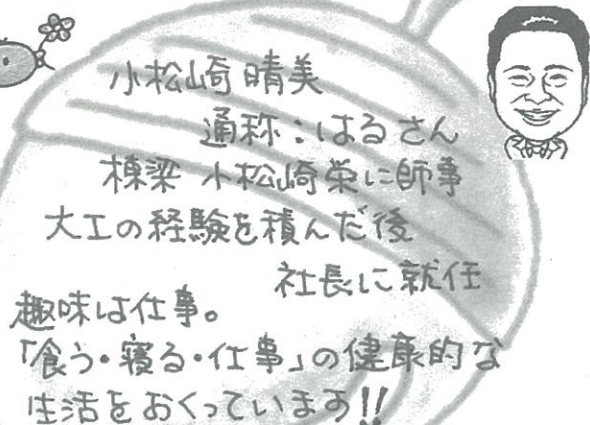 小松崎 晴美
通称：はるさん
棟梁 小松崎栄に師事
大工の経験を積んだ後
社長に就任
趣味は仕事。
「食う・寝る・仕事」の健康的な
生活をおくっています!!